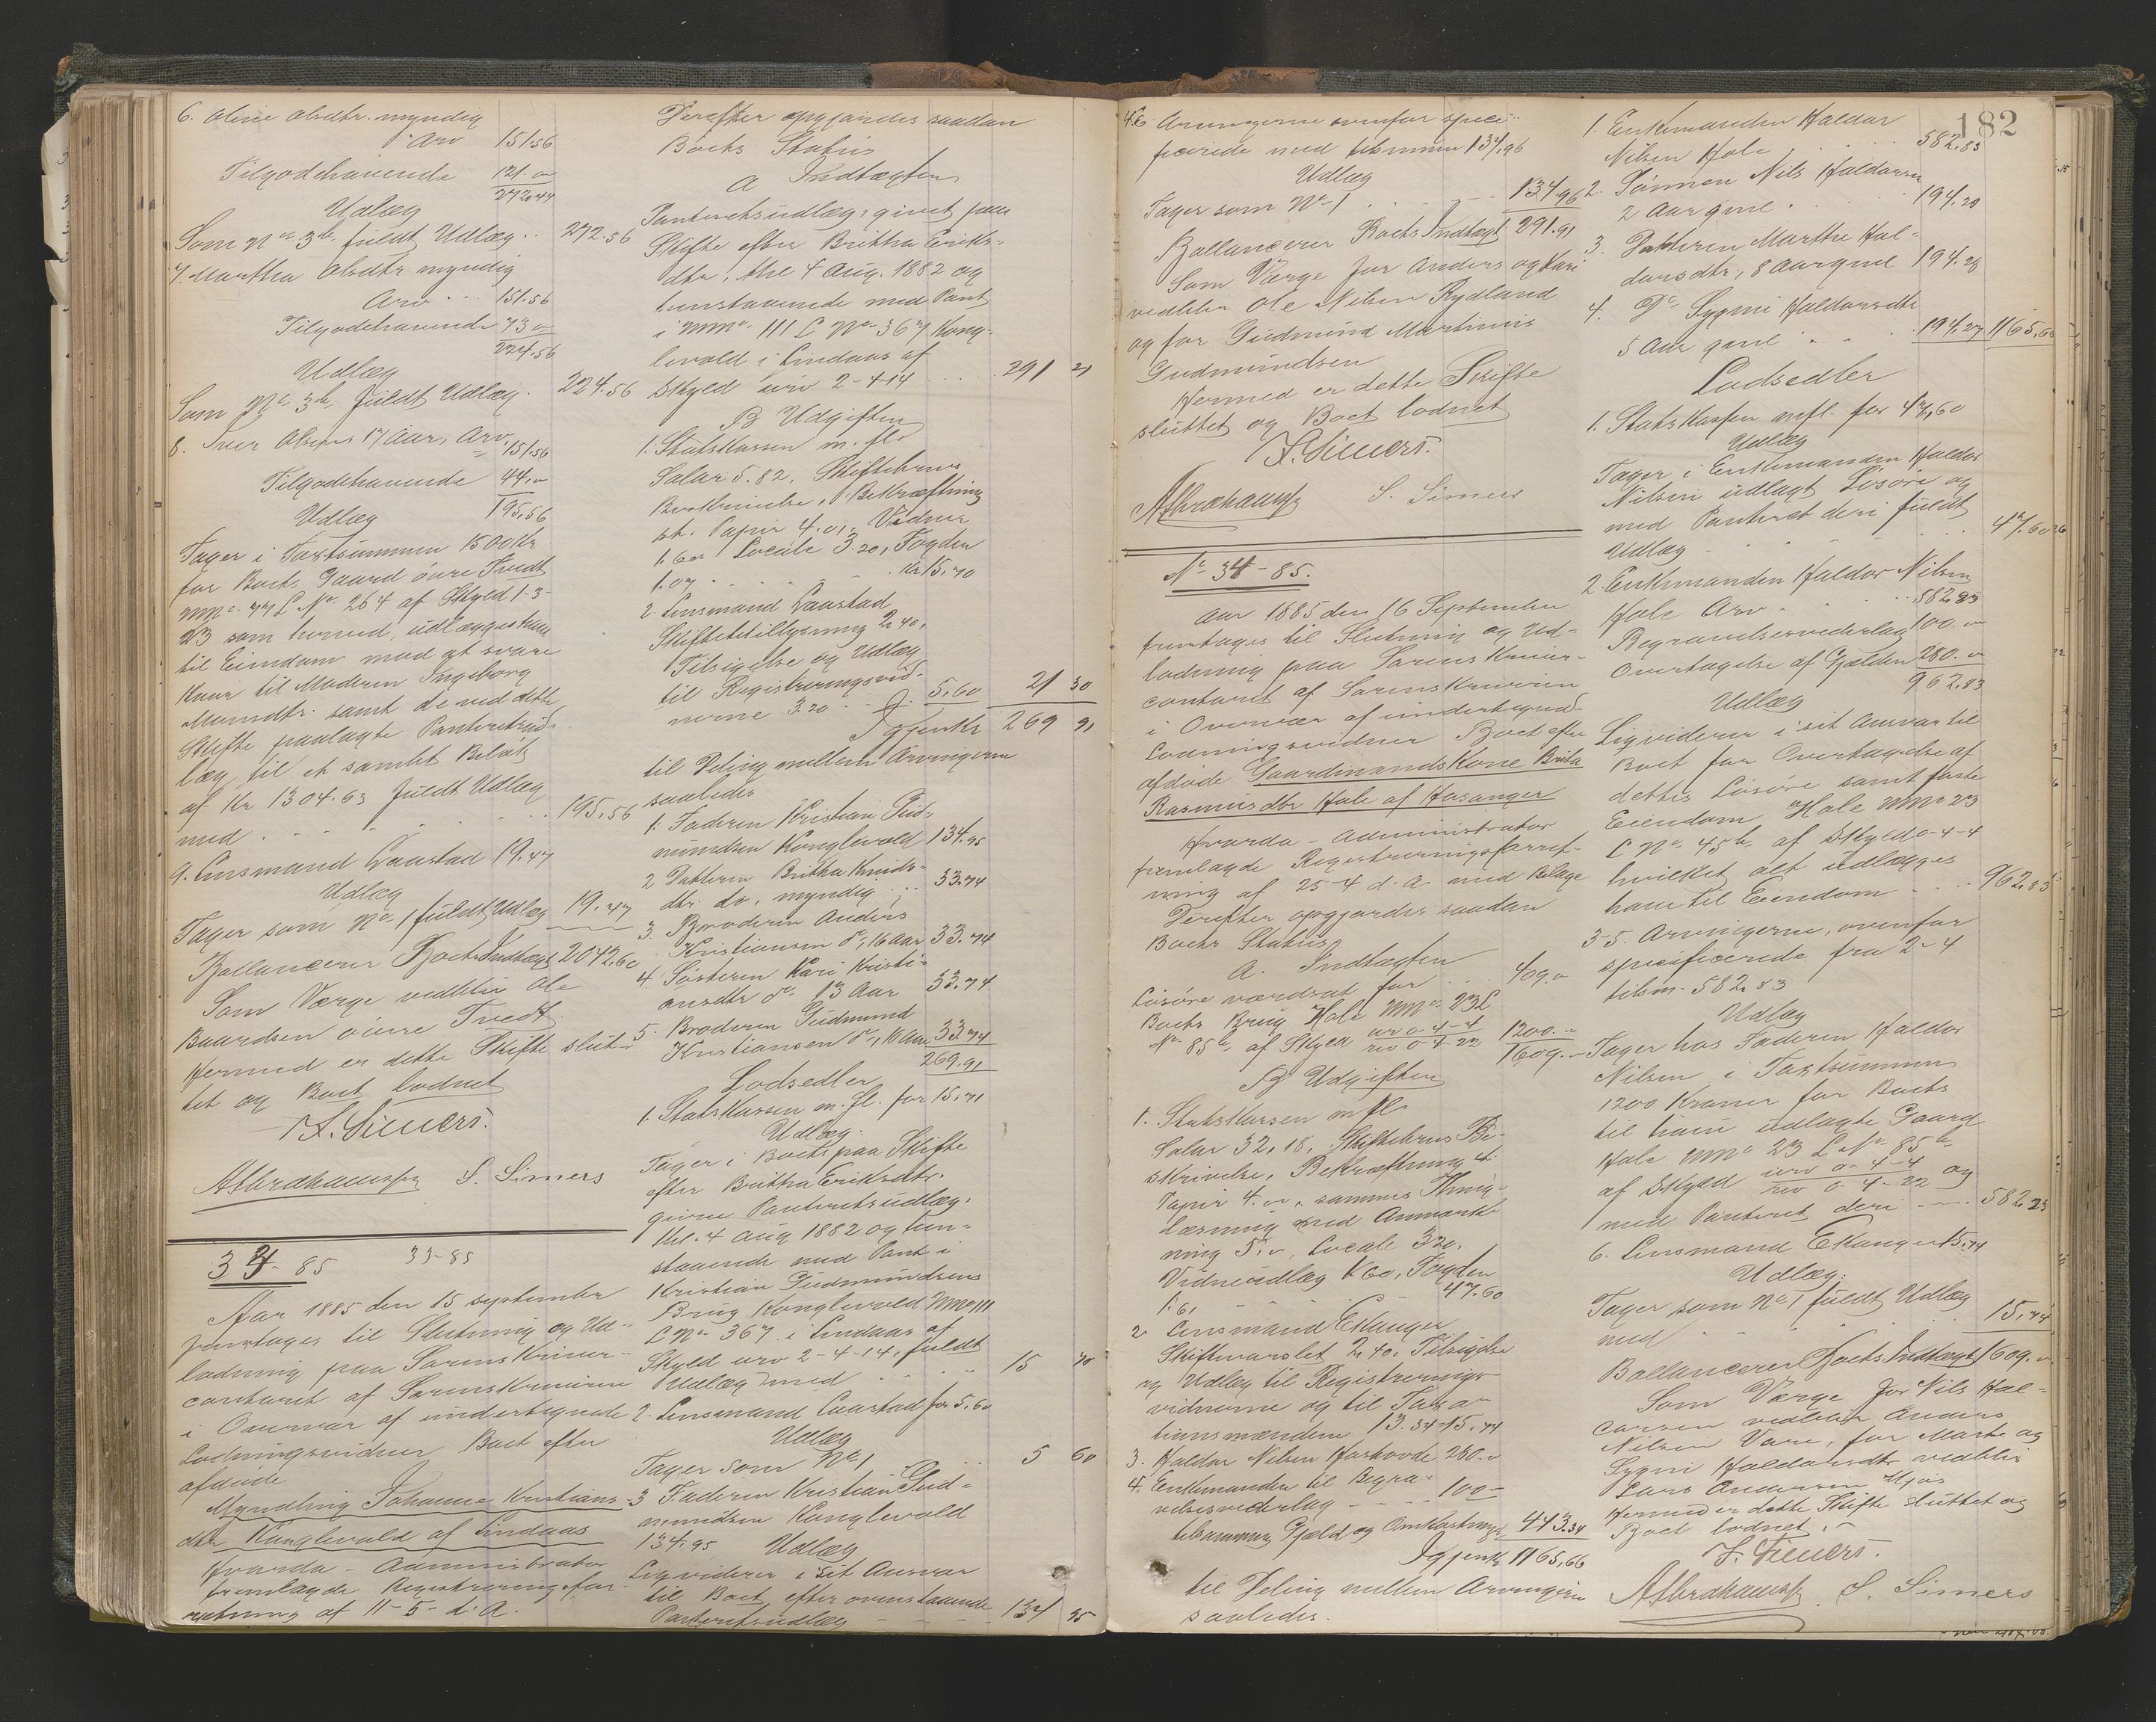 6. Oline Olsdtr. myndig
Arv 151.56
Tilgodehavende 121. "
272.44
Udlæg
Som No 3b fuldt Udlæg .. 272.56
7. Martha Olsdtr myndig
Arv .. 151.56
Tilgodehavende 73 "
224.56
Udlæg
Som No 3b fuldt Udlæg . 224.56
8. Iver Olsen 17 Aar, Arv. 151.56
Tilgodehavende 44. "
195.56
Udlæg
Tager i Taxtsummen 1500 Kr
for Boets Gaard övre Tvedt
MNo 77 L No 264 af Skyld 1-3-
23 som herved, udlægges ham
til Eiendom mod at svare
Kaar til Moderen Ingeborg
Monsdtr. samt de ved dette
Skifte paalagte Panteretsud-
læg til et samlet Beløb
af Kr 1304.63 fuldt Udlæg
med . . . . 195.56
9. Lensmand Laastad 19.47
Udlæg
Tager som No 1 fuldt Udlæg 19.47
Ballancerer Boets Indtægt 2042.60
Som Værge vedbliv Ole
Baardsen övre Tvedt.
Hermed er dette Skifte slut-
tet og Boet lodnet
F. Sievers.
A Abrahamsen S. Simers
34-85 33-85
Aar 1885 den 15 september
foretages til Slutning og Ud-
lodning paa Sorenskriver-
contoret af Sorenskriveren
i Overvær af undertegnede
Lodningsvidner Boet efter
afdøde
Myndling Johanne Kristians-
dtr Konglevold af Lindaas
Hvorda - Administrator
fremlagde Registreringsfor-
retning af 11-5- d. A.
Derefter opgjordes saadan
Boets Status
A Indtægten
Panteretsudlæg, givet paa
Skifte efter Brittha Eriks-
dtr, thl 4 Aug. 1882 og
henstaaende med Pant
i MNo 111 L No 367 Kong-
levold i Lindaas af
Skyld urv 2-4-14 .... 291 21
B Udgiften
1. Statskassen m. fl.
Salar 5.82, Skiftebrevs
Beskrivelse, Bekræftning
st. Papir 4.01, Vidner
1.60, Locale 3.20, Fogden
1.07 . . . . Kr 15.70
2. Lensmand Laastad
Skiftetillysning 2.40,
Tilsigelse og Udlæg
til Registreringsvid-
nerne 3.20 . . 5.60 21 30
Igjen Kr 269 91
til Deling mellem Arvingerne
saaledes
1. Faderen Kristian Gud-
mundsen Konglevold 134.95
2 Datteren Brittha Knuds-
dtr. do, myndig .. 33.74
3. Broderen Anders
Kristiansen do, 16 Aar 33.74
4. Søsteren Kari Kristi-
ansdtr do 13 Aar 33.74
5. Broderen Gudmund
Kristiansen do, 10 Aar 33.74
269.91
Lodsedler
1. Statskassen m. fl. for 15.71
Udlæg.
Tager i Boets paa Skifte
efter Brittha Eriksdtr.
givne Panteretsudlæg,
thl. 4 Aug 1882 og hen-
staaende med Pant i
Kristian Gudmundsens
Brug Konglevold MNo 111
L No 367 i Lindaas af
Skyld urv 2-4-14, fuldt
Udlæg med . . . . 15 70
2. Lensmand Laastad for 5.60
Udlæg
Tager som No 1 5 60
3 Faderen Kristian Gud-
mundsen Konglevold
134.95 Udlæg
Ligviderer i sit Ansvar
til Boet, efter ovenstaaende
Panteretsudlæg - - - 134 95
4-6 Arvingerne ovenfor speci-
ficerede med tilsammen 134.96
Udlæg
Tager som No 1 . . . 134.96
Ballancerer Boets Indtægt 291.91
Som Værge for Anders og Kari
vedbliv Ole Nilsen Rydland
og for Gudmund Martinus
Gudmundsen
Hermed er dette Skifte
sluttet og Boet lodnet
F. Sievers.
A Abrahamsen S. Simers
No 34-85.
Aar 1885 den 16 September
foretages til Slutning og Ud-
lodning paa Sorenskriver-
contoret af Sorenskriveren
i Overvær af undertegned
Lodningsvidner Boet efter
afdøde Gaardmandskone Brita
Rasmusdtr Hole af Hosanger
Hvorda - Administrator
fremlagde Registreringsforret-
ning af 25-4 d. A. med Bilage
Derefter opgjordes saadan
Boets Status
A. Indtægten
Løsøre værdsat for .. 409. "
Boets Brug Hole MNo 23 L
No 85b, af Skyld urv 0-4-4 rev 0-4-22 1200. "
1609. -
B Udgiften
1. Statskassen m fl.
Salar 32.18, Skiftebrevs Be-
skrivelse, Bekræftning st
Papir 4. ", sammes Thing-
læsning med Anmærk-
ning 5. ", Locale 3.20,
Vidneudlæg 1.60, Fogden
1.61 - - - - 47.60
2. Lensmand Ekanger
Skiftevarslet 2.40, Tilsigelse
og Udlæg til Registrerings-
vidnerne og til Taxa-
tionsmændene 13.34 - 15.74
3. Haldor Nilsen Hoshovde 280. "
4. Enkemanden til Begra-
velsesvederlag - - - 100 -
tilsammen Gjæld og Omkostninger 443.34
Igjen Kr 1165.66
til Deling mellem Arvingerne
saaledes.
182
1. Enkemanden Haldor
Nilsen Hole . . . . . 582.83
2. Sønnen Nils Haldorsen
2 Aar gml . . . 194.28
3. Datteren Marthe Hal-
dorsdtr., 8 Aar gml 194.28
4. Do Sygni Haldorsdtr
5 Aar gml . . . 194.27 1165.66
Lodsedler
1. Statskassen mfl. for 47.60
Udlæg
Tager i Enkemanden Haldor
Nilsens udlagt Løsøre og
med Panteret deri fuldt
Udlæg . . . . . 47.60
2. Enkemanden Haldor Nilsen
Hole Arv . . . . 582.83
Begravelsesvederlag 100. "
Overtagelse af Gjælden 280. "
962.83
Udlæg
Ligviderer i sit Ansvar til
Boet for Overtagelse af
dettes Løsøre samt faste
Eiendom Hole MNo 23
L No 45b af Skyld 0-4-4
hvilket alt udlægges
ham til Eiendom . . . 962.83
3-5. Arvingerne, ovenfor
specificerede fra 2-4
tilsm. 582.83
Udlæg
Tager hos Faderen Haldor
Nilsen i Taxtsummen
1200 Kroner for Boets
til ham udlagte Gaard
Hole MNo 23 L No 85b
af Skyld urv 0-4-4 rev 0-4-22 og
med Panteret deri .... 582.83
6. Lensmand Ekanger 15.74
Udlæg.
Tager som No 1 fuldt Udlæg
med . . . . . 15.74
Ballancerer Boets Indtægt 1609. "
Som Værge for Nils Hal-
dorsen vedbliv Anders
Nilsen Vare, for Marte og
Sygni Haldorsdtr vedbliv
Lars Andersen Mjøs
Hermed er dette Skifte sluttet og
Boet lodnet.
F. Sievers.
A Abrahamsen S. Simers